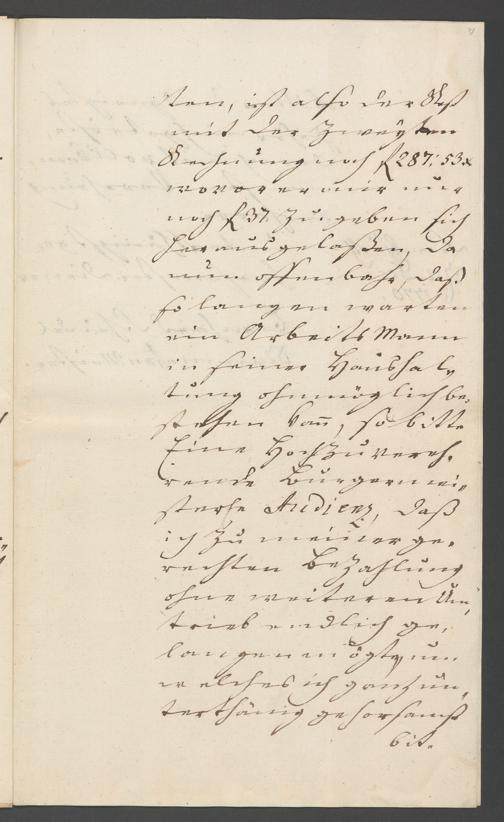 ten, ist also der Rest
mit der Zweyten
Rechnung noch f 287; 53 x
wovor er mir nur
noch f 37. Zu geben sich
herausgelaßen, Da
nun offenbahr, daß
so langen warten
ein Arbeits Mann
in seiner Haushal„
tung ohnmöglich be„
stehen kan̄, so bitte
Eine Hochzuvereh„
rende Burgermei„
sterhe Audienz, daß
ich zu meiner ge„
rechten Bezahlung
ohne weiteren Um„
trieb endlich ge„
langen mögte, um
welches ich ganz un„
terthänig gehorsamst
bit.